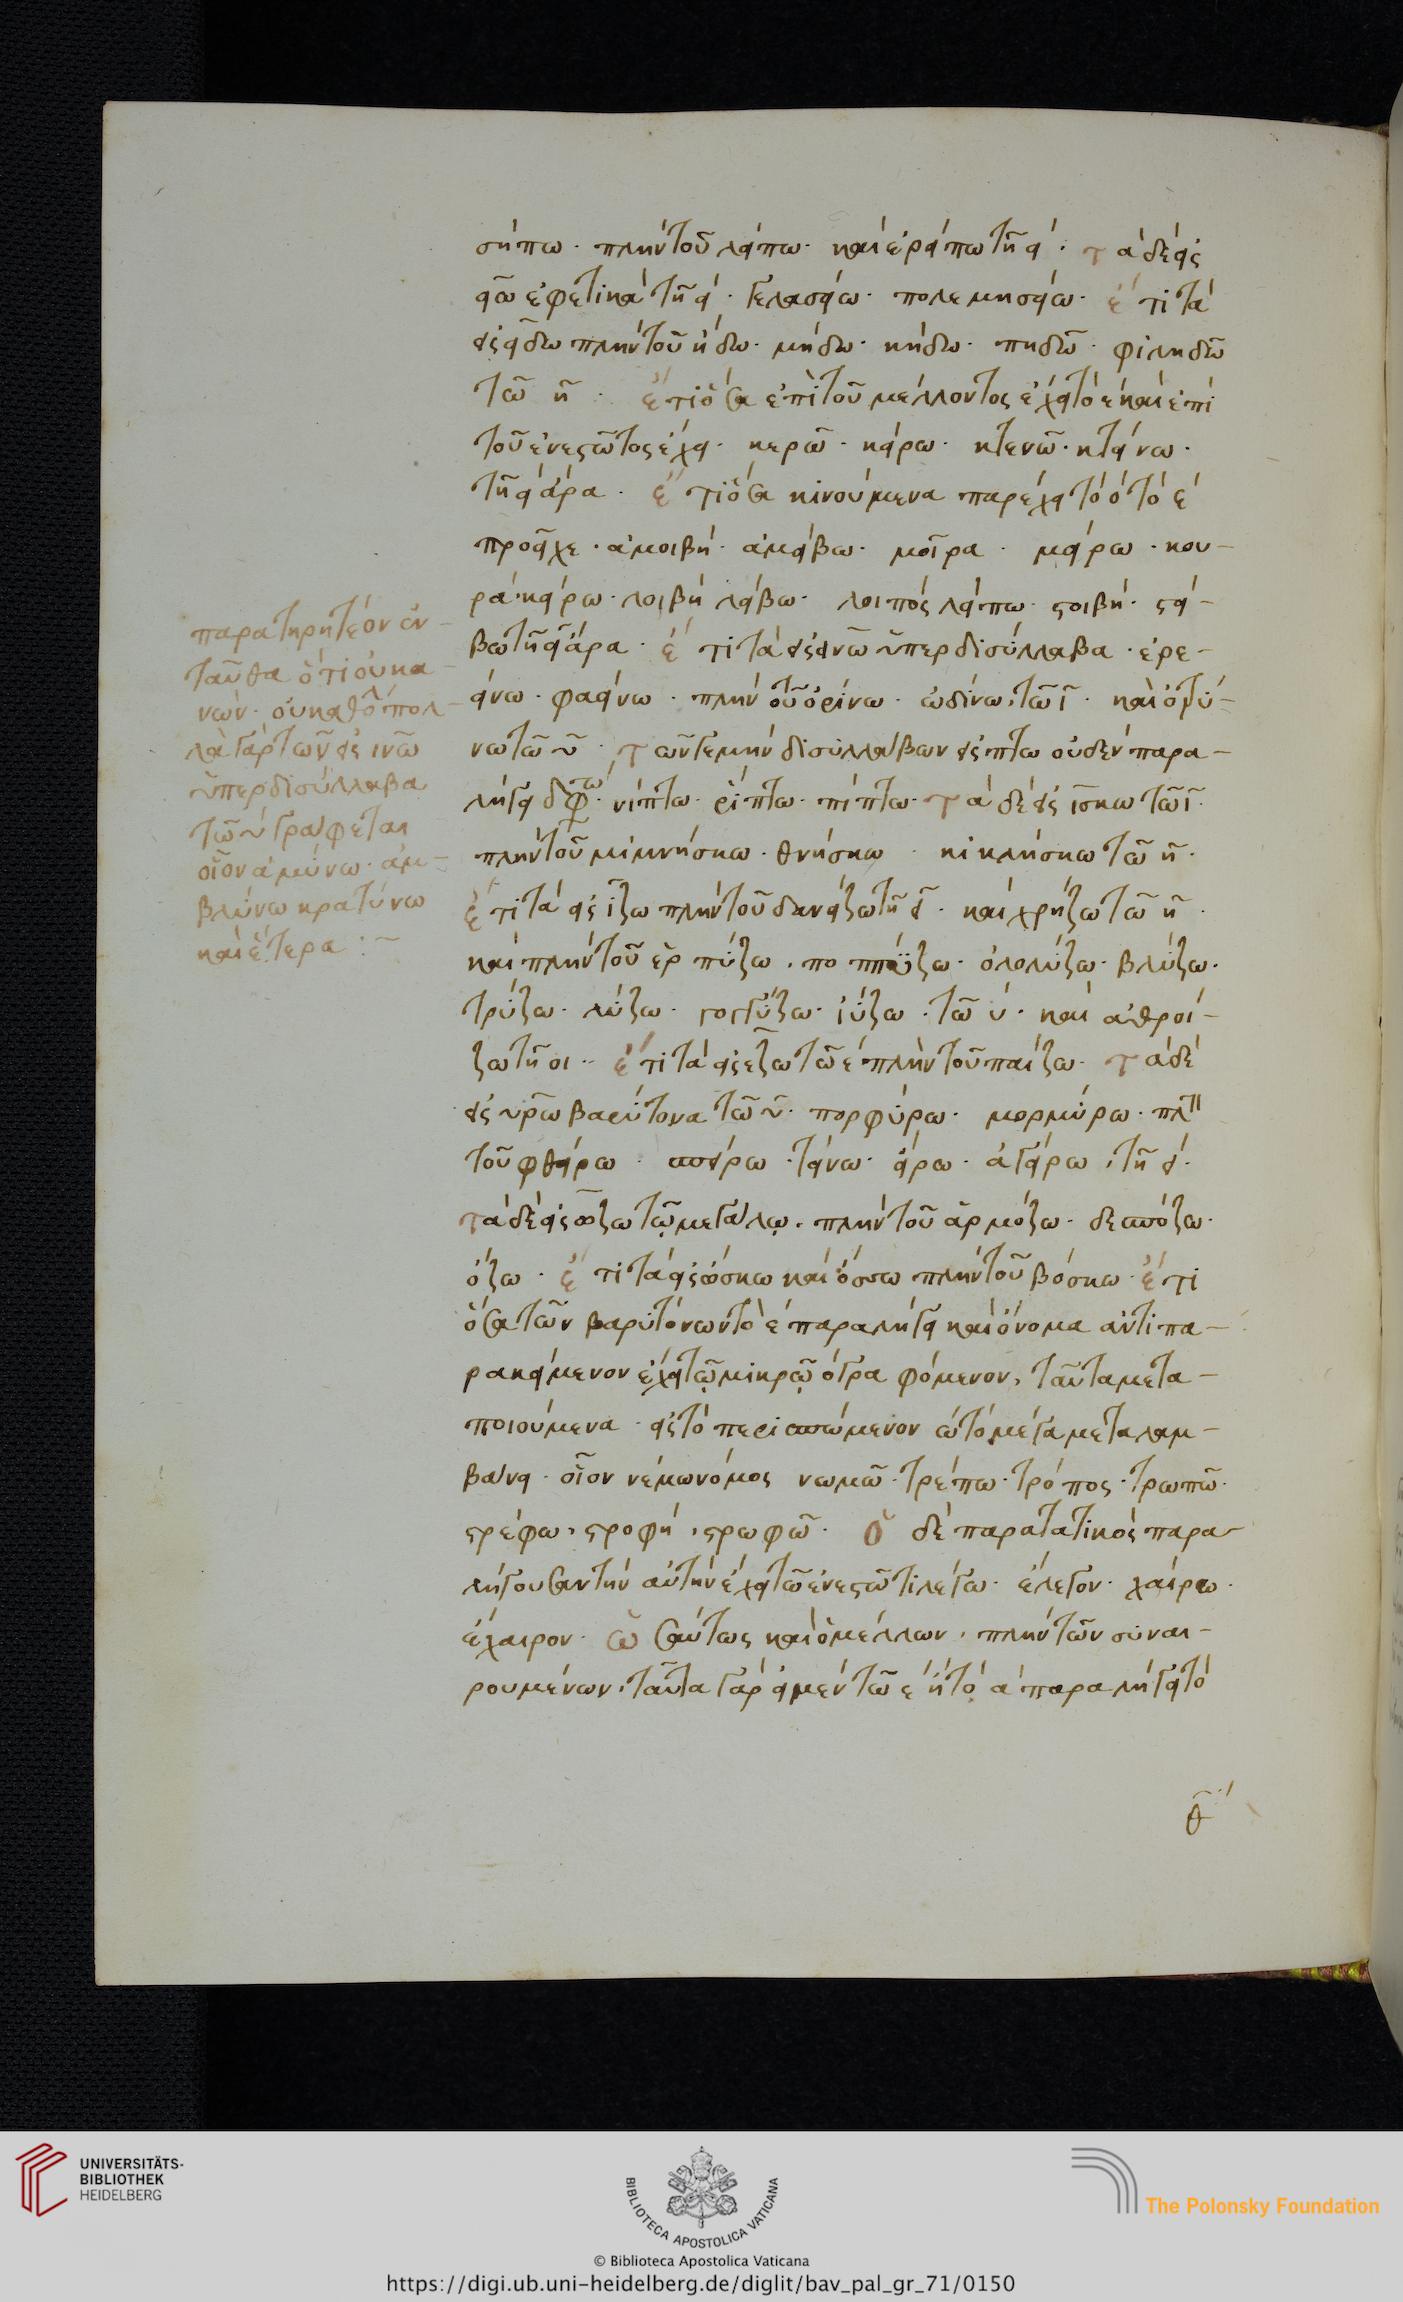 σήπω· πλὴν τοῦ λείπω· καὶ ἐρείπω τῆ ει· τὰ δὲ εἰς
είω ἐφετικὰ τῆ ει· γελασείω· πολεμησείω· ἔτι τὰ
εἰς δω πλὴν τοῦ ἥδω· μήδω· κήδω· πηδῶ· φιληδῶ
τῶ η· ἔτι ὅσα ἐπὶ τοῦ μέλλοντος ἔχει τὸ ε καὶ ἐπὶ
τοῦ ἐνεστῶτος ἔχει· κερῶ· κείρω· κτενῶ· κτείνω·
τῆ ει ἄρα· ἔτι ὅσα κινούμενα παρέχει τὸ ο τὸ ε
προεῖχε· ἀμοιβή· ἀμείβω· μοῖρα· μείρω· κου-
ρά· κείρω· λοιβὴ λείβω· λοιπός λείπω· στοιβή· στεί-
βω τῆ ει ἄρα· ἔτι τὰ εἰς εινω ὑπερδισύλλαβα· ἐρε-
είνω· φαείνω· πλὴν τοῦ ὀρίνω· ὠδίνω, τῶ ι· καὶ ὀτρύ-
νω τῶ υ· τῶν γε μὴν δισυλλάβων εἰς πτω οὐδὲν παρα-
λήγει· νίπτω· ῥίπτω· πίπτω· τὰ δὲ εἰς ισκω τῶ ι·
πλὴν τοῦ μιμνήσκω· θνήσκω· κικλήσκω τῶ η·
ἔτι τὰ εἰς ιζω πλὴν τοῦ δανείζω τῆ ει· καὶ χρήζω τῶ η·
καὶ πλὴν τοῦ ἑρπύζω· ποππύζω· ὀλολύζω· βλύζω·
τρύζω· λύζω· γογγύζω· ἰύζω· τῶ υ· καὶ ἀθροί-
ζω τῆ οι·· ἔτι τὰ εἰς εζω τῶ ε πλὴν τοῦ παίζω· τὰ δὲ
εἰς υρω βαρύτονα τῶ υ· πορφύρω· μορμύρω· πλὴν
τοῦ φθείρω· σπείρω· τείνω· εἴρω· ἀγείρω, τῆ ει·
τὰ δὲ εἰς ωζω τῷ μεγάλῳ. πλὴν τοῦ ἁρμόζω· δεσπόζω·
ὄζω· ἔτι τὰ εἰς ώσκω καὶ όσσω πλὴν τοῦ βόσκω· ἔτι
ὅσα τῶν βαρυτόνων τὸ ε παραλήγει καὶ ὄνομα ἀντιπα-
ρακείμενον ἔχει τῷ μικρῷ ο γραφόμενον, ταῦτα μετα-
ποιούμενα· εἰς τὸ περισπώμενον ω τὸ μέγα μεταλαμ-
βάνει· οἷον νέμω νόμος νωμῶ· τρέπω· τρόπος· τρωπῶ·
στρέφω, στροφή, στρωφῶ· ὁ δὲ παρατατικὸς παρα-
λήγουσαν τὴν αὐτὴν ἔχει τῶ ἐνεστῶτι λέγω· ἔλεγον· χαίρω·
ἔχαιρον· ὡσαύτως καὶ ὁ μέλλων, πλὴν τῶν συναι-
ρουμένων, ταῦτα γὰρ εἰ μὲν τῶ ε ἢ τὸ α παραλήγει τὸ
θ
παρατηρητέον ἐν-
ταῦθα ὅτι οὐ κα-
νών· οὐ καθόλ πολ-
λὰ γὰρ τῶν εἰς ινω
ὑπερδισύλλαβα
τῶ υ γράφεται
οἷον ἀμύνω· ἀμ-
βλύνω κρατύνω
καὶ ἕτερα :~
UNIVERSITÄTS-
BIBLIOTHEK
HEIDELBERG
BIBLIOTECA APOSTOLICA VATICANA
© Biblioteca Apostolica Vaticana
The Polonsky Foundation
https://digi.ub.uni-heidelberg.de/diglit/bav_pal_gr_71/0150